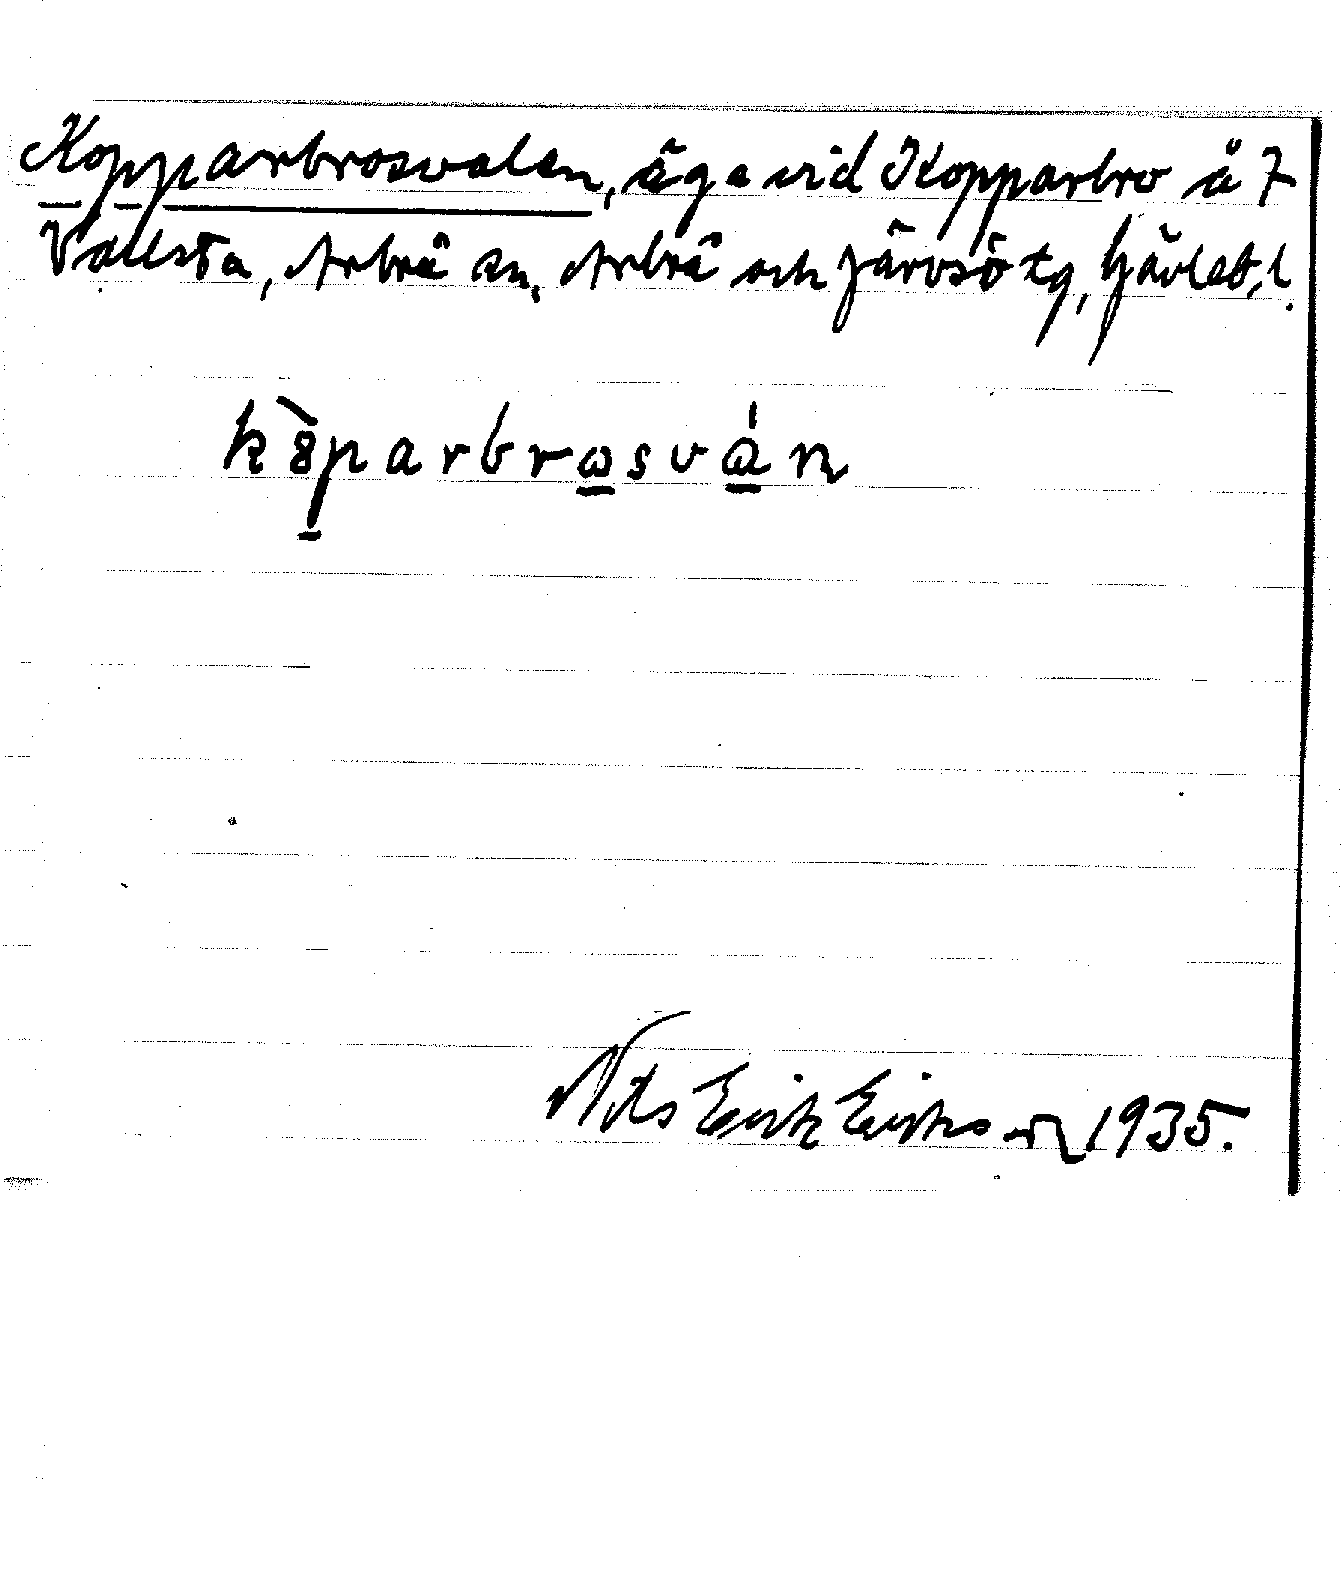 Kopparbrosvalen, äga vid Kopparbro å 7
Vallsta, Arbrå sn, Arbrå och Järvsö tg, Gävleb. l.
kòparbrosván
Nils Erik Eriksson 1935.